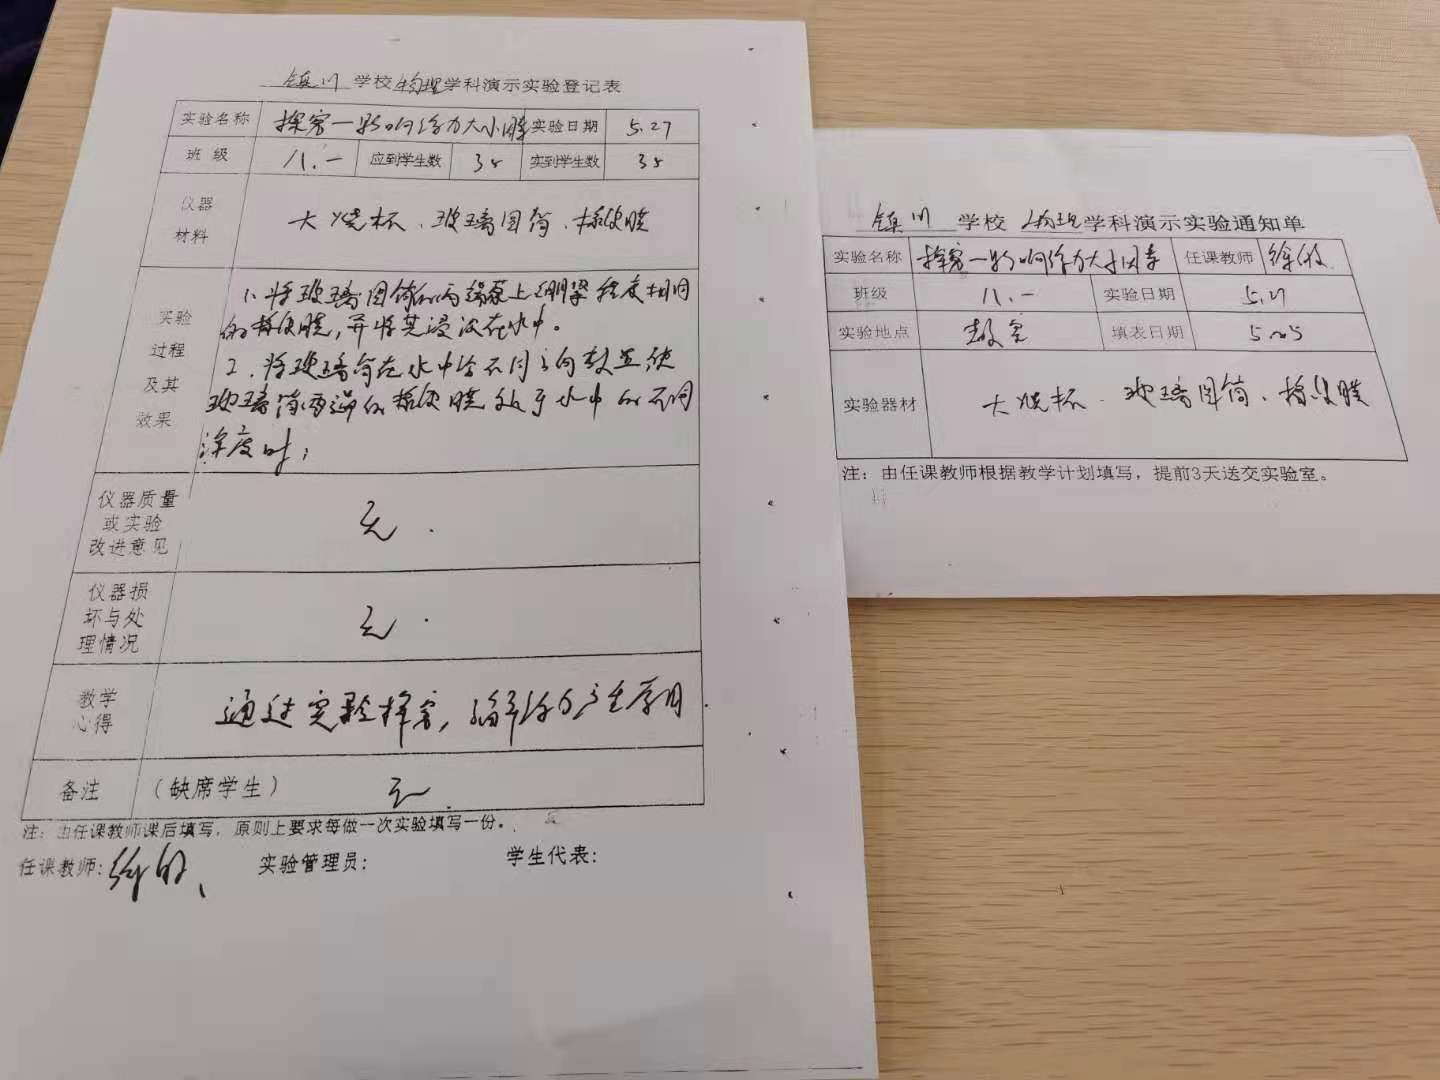 镇川 学校 物理 学科演示实验登记表
实验名称 探究一影响浮力大小因 实验日期 5.27
班 级 八.一 应到学生数 38 实到学生数 38
仪器材料 大烧杯、玻璃圆筒、橡皮膜
实验过程及其效果
1、将玻璃圆筒的两端蒙上绷紧程度相同
的橡皮膜,并将其浸没在水中。
2、将玻璃筒在水中沿不同方向放置使
玻璃筒两端的橡皮膜处于水中的不同
深度时;
仪器质量或实验改进意见 无.
仪器损坏与处理情况 无.
教学心得 通过实验探究,浮力产生原因
备注 (缺席学生) 无.
注:由任课教师课后填写,原则上要求每做一次实验填写一份。
任课教师: 实验管理员: 学生代表:
镇川 学校 物理 学科演示实验通知单
实验名称 探究一影响浮力大小因素 任课教师 徐
班级 八.一 实验日期 5.27
实验地点 教室 填表日期 5.25
实验器材 大烧杯、玻璃圆筒、橡皮膜
注:由任课教师根据教学计划填写,提前3天送交实验室。